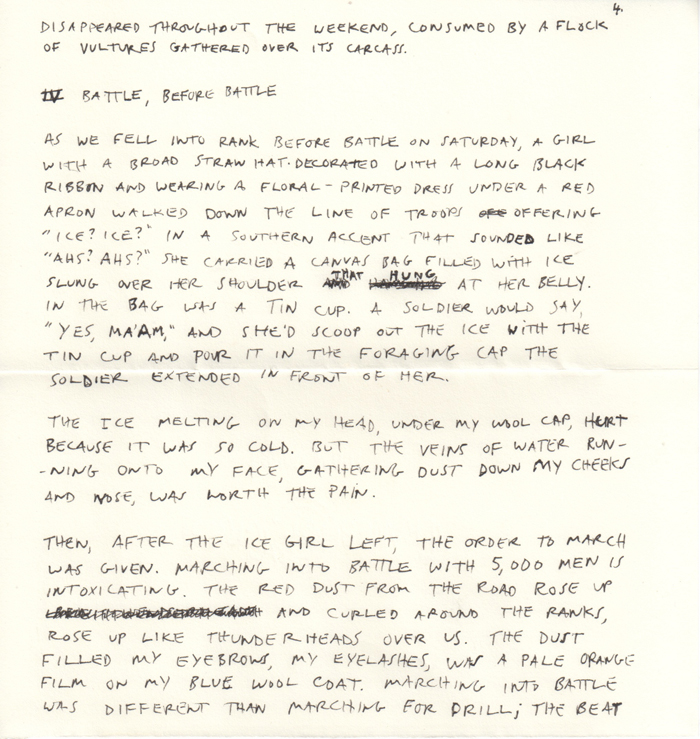 4.
DISAPPEARED THROUGHOUT THE WEEKEND, CONSUMED BY A FLOCK
OF VULTURES GATHERED OVER ITS CARCASS.
IV BATTLE, BEFORE BATTLE
AS WE FELL INTO RANK BEFORE BATTLE ON SATURDAY, A GIRL
WITH A BROAD STRAW HAT DECORATED WITH A LONG BLACK
RIBBON AND WEARING A FLORAL-PRINTED DRESS UNDER A RED
APRON WALKED DOWN THE LINE OF TROOPS OFFERING
"ICE? ICE?" IN A SOUTHERN ACCENT THAT SOUNDED LIKE
"AHS? AHS?" SHE CARRIED A CANVAS BAG FILLED WITH ICE
SLUNG OVER HER SHOULDER THAT HUNG AT HER BELLY.
IN THE BAG WAS A TIN CUP. A SOLDIER WOULD SAY,
"YES, MA'AM," AND SHE'D SCOOP OUT THE ICE WITH THE
TIN CUP AND POUR IT IN THE FORAGING CAP THE
SOLDIER EXTENDED IN FRONT OF HER.
THE ICE MELTING ON MY HEAD, UNDER MY WOOL CAP, HURT
BECAUSE IT WAS SO COLD. BUT THE VEINS OF WATER RUN-
-NING ONTO MY FACE, GATHERING DUST DOWN MY CHEEKS
AND NOSE, WAS WORTH THE PAIN.
THEN, AFTER THE ICE GIRL LEFT, THE ORDER TO MARCH
WAS GIVEN. MARCHING INTO BATTLE WITH 5,000 MEN IS
INTOXICATING. THE RED DUST FROM THE ROAD ROSE UP
AND CURLED AROUND THE RANKS,
ROSE UP LIKE THUNDERHEADS OVER US. THE DUST
FILLED MY EYEBROWS, MY EYELASHES, WAS A PALE ORANGE
FILM ON MY BLUE WOOL COAT. MARCHING INTO BATTLE
WAS DIFFERENT THAN MARCHING FOR DRILL; THE BEAT